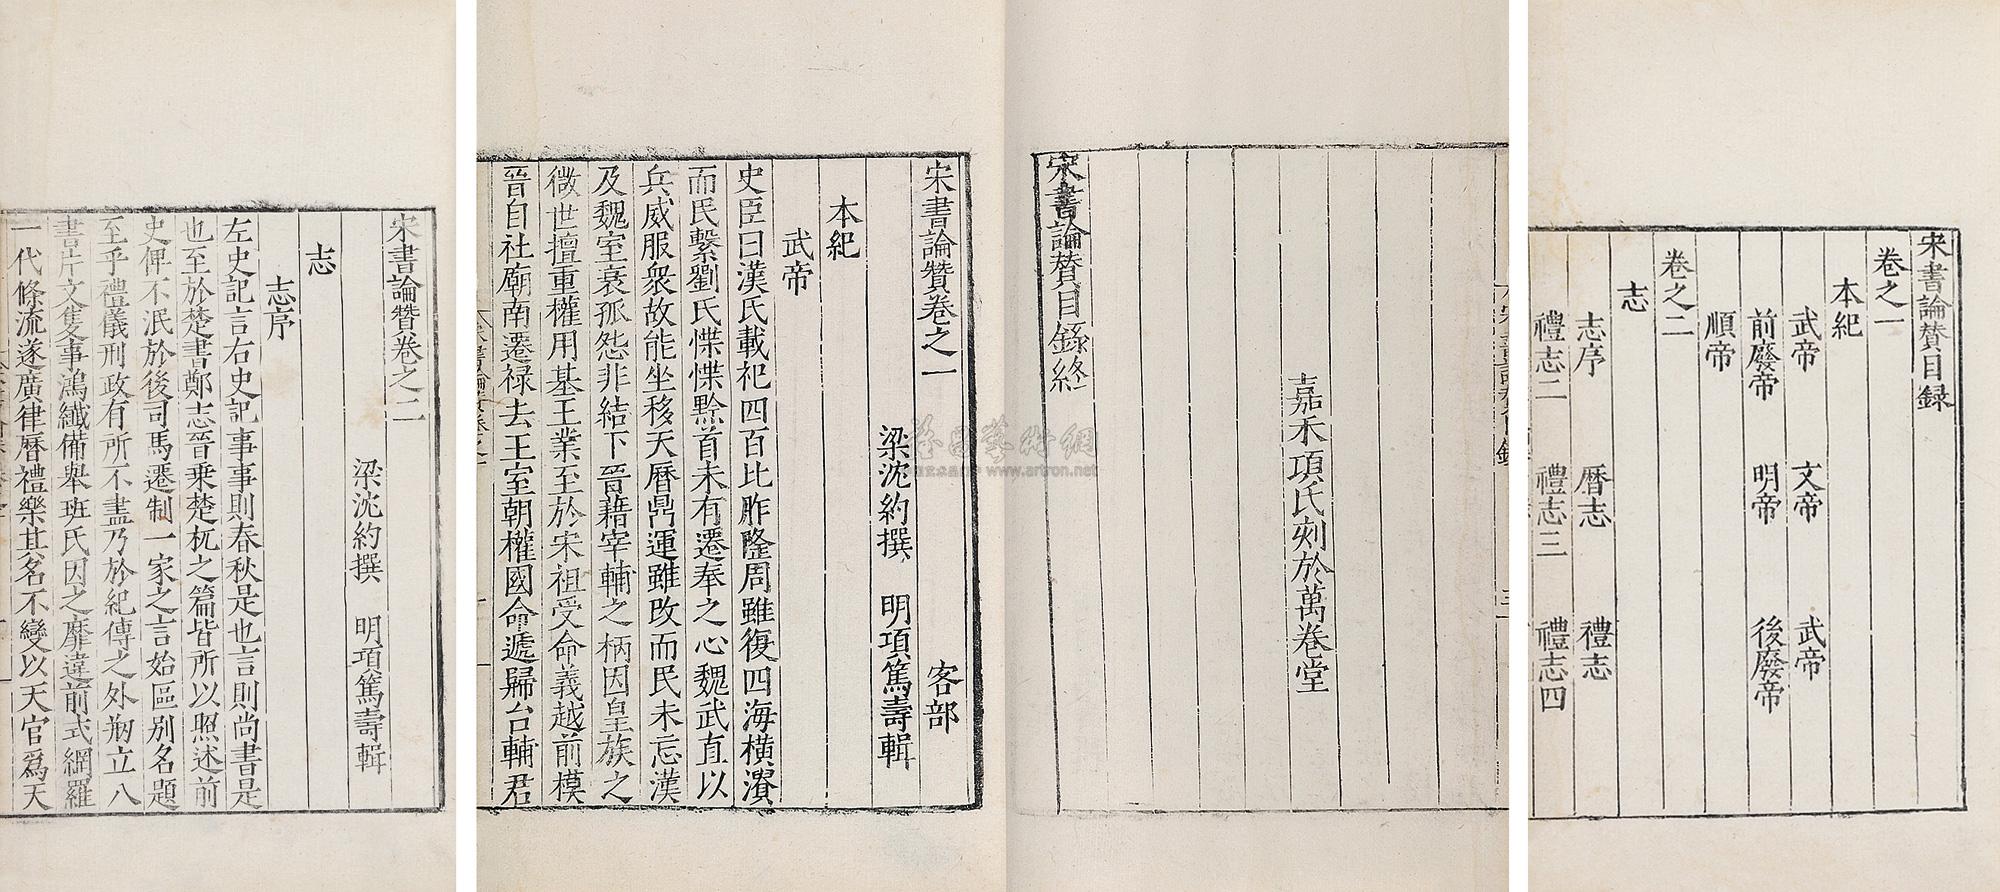 宋書論贊目録
卷之一
本紀
武帝 文帝 武帝
前廢帝 明帝 後廢帝
順帝
卷之二
志
志序 曆志 禮志
禮志二 禮志三 禮志四
嘉禾項氏刻於萬卷堂
宋書論贊目錄終
宋書論贊卷之一 客部
梁沈約撰 明項篤壽輯
本紀
武帝
史臣曰漢氏載祀四百比胙隆周雖復四海橫潰
而民繫劉氏惵惵黔首未有遷奉之心魏武直以
兵威服衆故能坐移天曆鼎運雖改而民未忘漢
及魏室衰孤怨非結下晉藉宰輔之柄因皇族之
微世擅重權用基王業至於宋祖受命義越前模
晉自社廟南遷祿去王室朝權國命遞歸台輔君
宋書論贊卷之二
梁沈約撰 明項篤壽輯
志
志序
左史記言右史記事事則春秋是也言則尚書是
也至於楚書鄭志晉乘楚杌之篇皆所以照述前
史俾不泯於後司馬遷制一家之言始區別名題
至乎禮儀刑政有所不盡乃於紀傳之外剏立八
書片文隻事鴻纖備舉班氏因之靡違前式網羅
一代條流遂廣律曆禮樂其名不變以天官爲天
www.artron.net